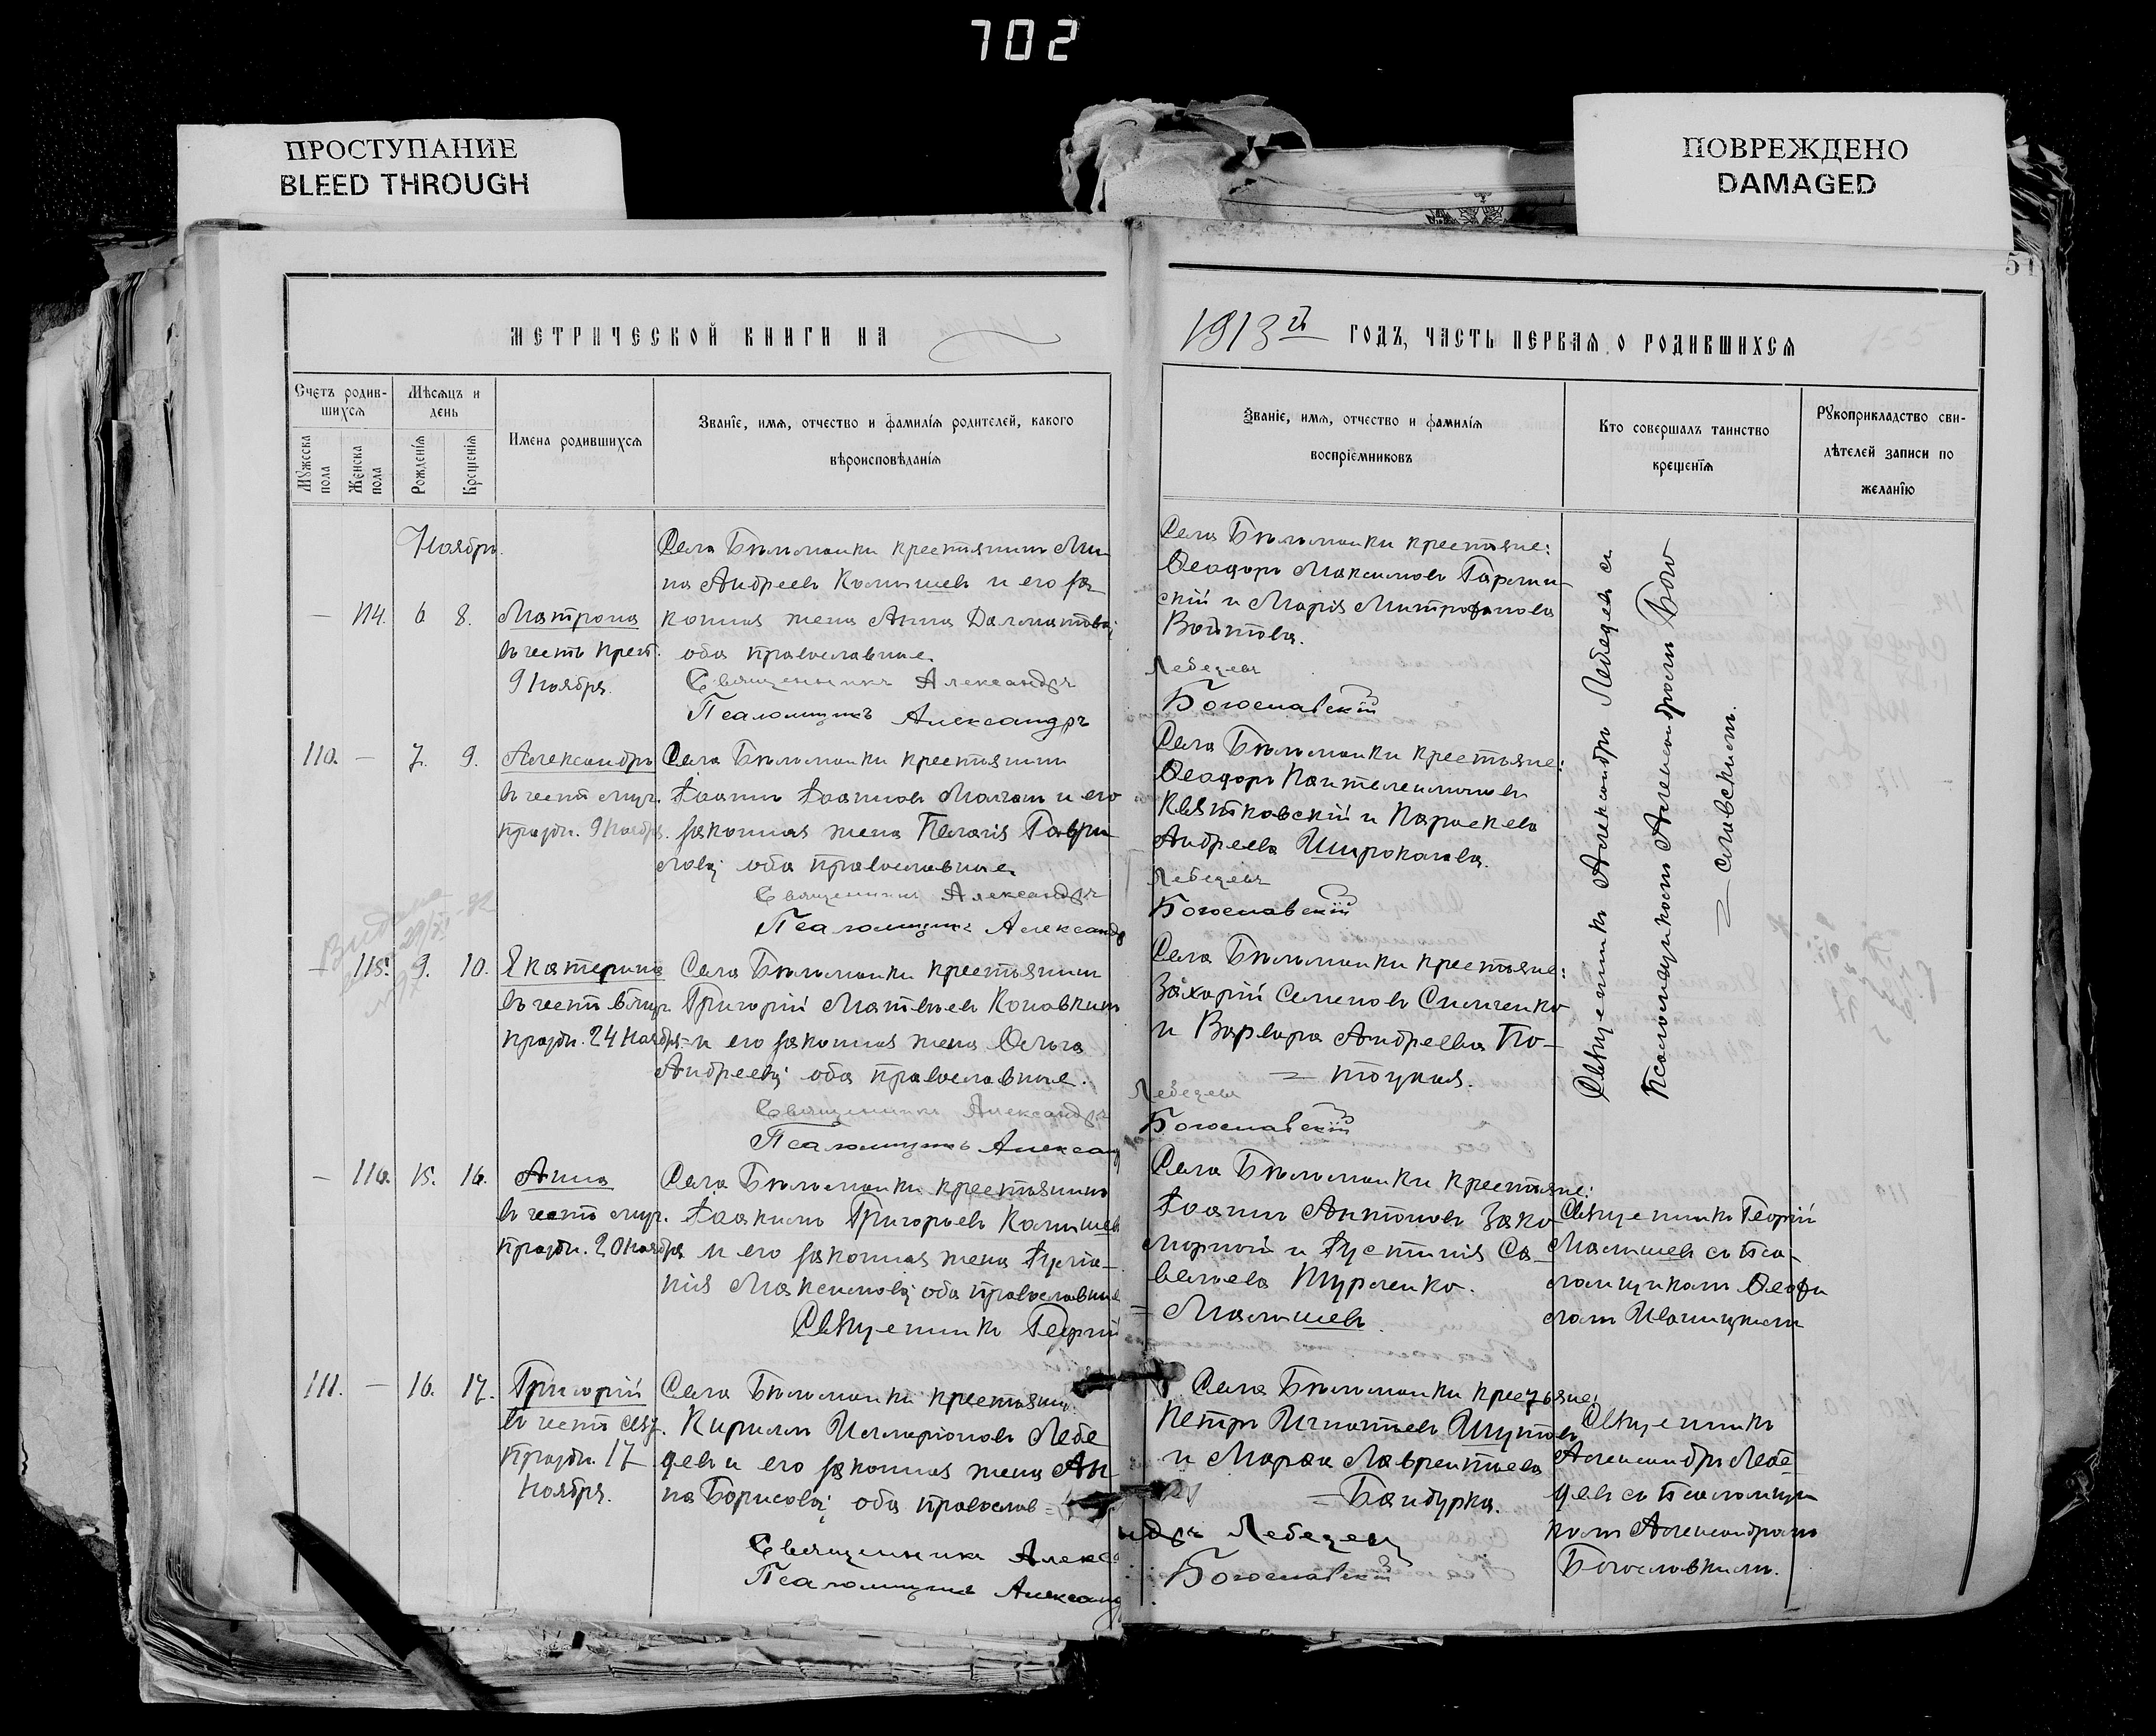 702
ПРОСТУПАНИЕ
BLEED THROUGH
ПОВРЕЖДЕНО
DAMAGED
51
МЕТРИЧЕСКОЙ КНИГИ НА
1913й ГОДЪ, ЧАСТЬ ПЕРВАЯ О РОДИВШИХСЯ
Счетъ родив-
шихся
Мужеска пола
Женска пола
Мѣсяцъ и
день
Рожденія
Крещенія
Имена родившихся
Званіе, имя, отчество и фамилія родителей, какого
вѣроисповѣданія
Званіе, имя, отчество и фамилія
воспріемниковъ
Кто совершалъ таинство
крещенія
Рукоприкладство сви-
дѣтелей записи по
желанію
Ноябрь.
— 114. 6. 8.
Матрона
въ честь преп.
9 Ноября.
Села Бѣломанки крестьянинъ Ми-
на Андреевъ Камышевъ и его за-
конная жена Анна Далматова;
оба православные.
Священникъ Александръ
Псаломщикъ Александръ
Села Бѣломанки крестьяне:
Ѳеодоръ Максимовъ
и Марія Митрофанова
Войтова.
Лебедевъ
Богославскій
110. — 7. 9.
Александръ
въ честь муч.
праздн. 9 ноября.
Села Бѣломанки крестьянинъ
Іоаннъ Іоанновъ Молчанъ и его
законная жена Пелагія Гаври-
лова; оба православные.
Священникъ Александръ
Псаломщикъ Александръ
Села Бѣломанки крестьяне:
Ѳеодоръ Пантелеимоновъ
Квятковскій и Параскева
Андреева Широколава.
Лебедевъ
Богославскій
Выдана
— 115. 9. 10.
Екатерина
въ честь в. муч.
праздн. 24 Ноября.
Села Бѣломанки крестьянинъ
Григорій Матвѣевъ Коновкинъ
и его законная жена Ольга
Андреева; оба православные.
Священникъ Александръ
Псаломщикъ Александръ
Села Бѣломанки крестьяне:
Захарій Семеновъ Симченко
и Варвара Андреева По-
= тоцкая.
Лебедевъ
Богославскій
Священникъ Александръ Лебедевъ съ
Псаломщикомъ Александромъ Бого-
= славскимъ.
— 116. 15. 16.
Анна
въ честь муч.
праздн. 20 ноября
Села Бѣломанки крестьянинъ
Іоакимъ Григорьевъ Камышев
и его законная жена Іуліа-
нія Максимова; оба православные
Священникъ Георгій
Села Бѣломанки крестьяне:
Іоаннъ Антоновъ Зако-
морной и Іустинія Са-
вельева Турченко.
= Малышевъ.
Священникъ Георгій
Малышевъ съ Пса-
ломщикомъ Ѳеофи-
ломъ Иваницкимъ
111. — 16. 17.
Григорій
въ честь свят.
праздн. 17
Ноября.
Села Бѣломанки крестьянин.
Кириллъ Илларіоновъ Лебе
девъ и его законная жена Ан-
на Борисова; оба православ=
Священникъ Алекса
Псаломщикъ Александ
Села Бѣломанки крестьяне:
Петръ Игнатьевъ Шутовъ
и Марѳа Лаврентьева
= Бандурка.
ндръ Лебедевъ
Богославскій
Священникъ
Александръ Лебе-
девъ съ Псаломщи-
комъ Александромъ
Богославскимъ.